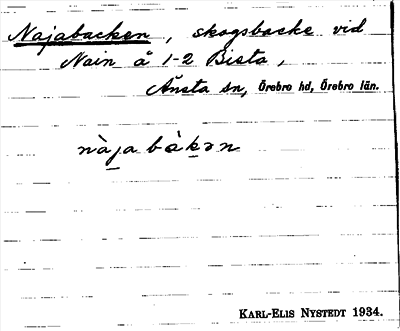 Najabacken, skogsbacke vid
Nain å 1-2 Bista,
Ånsta sn, Örebro hd, Örebro län.
nàja bàkən
KARL-ELIS NYSTEDT 1934.